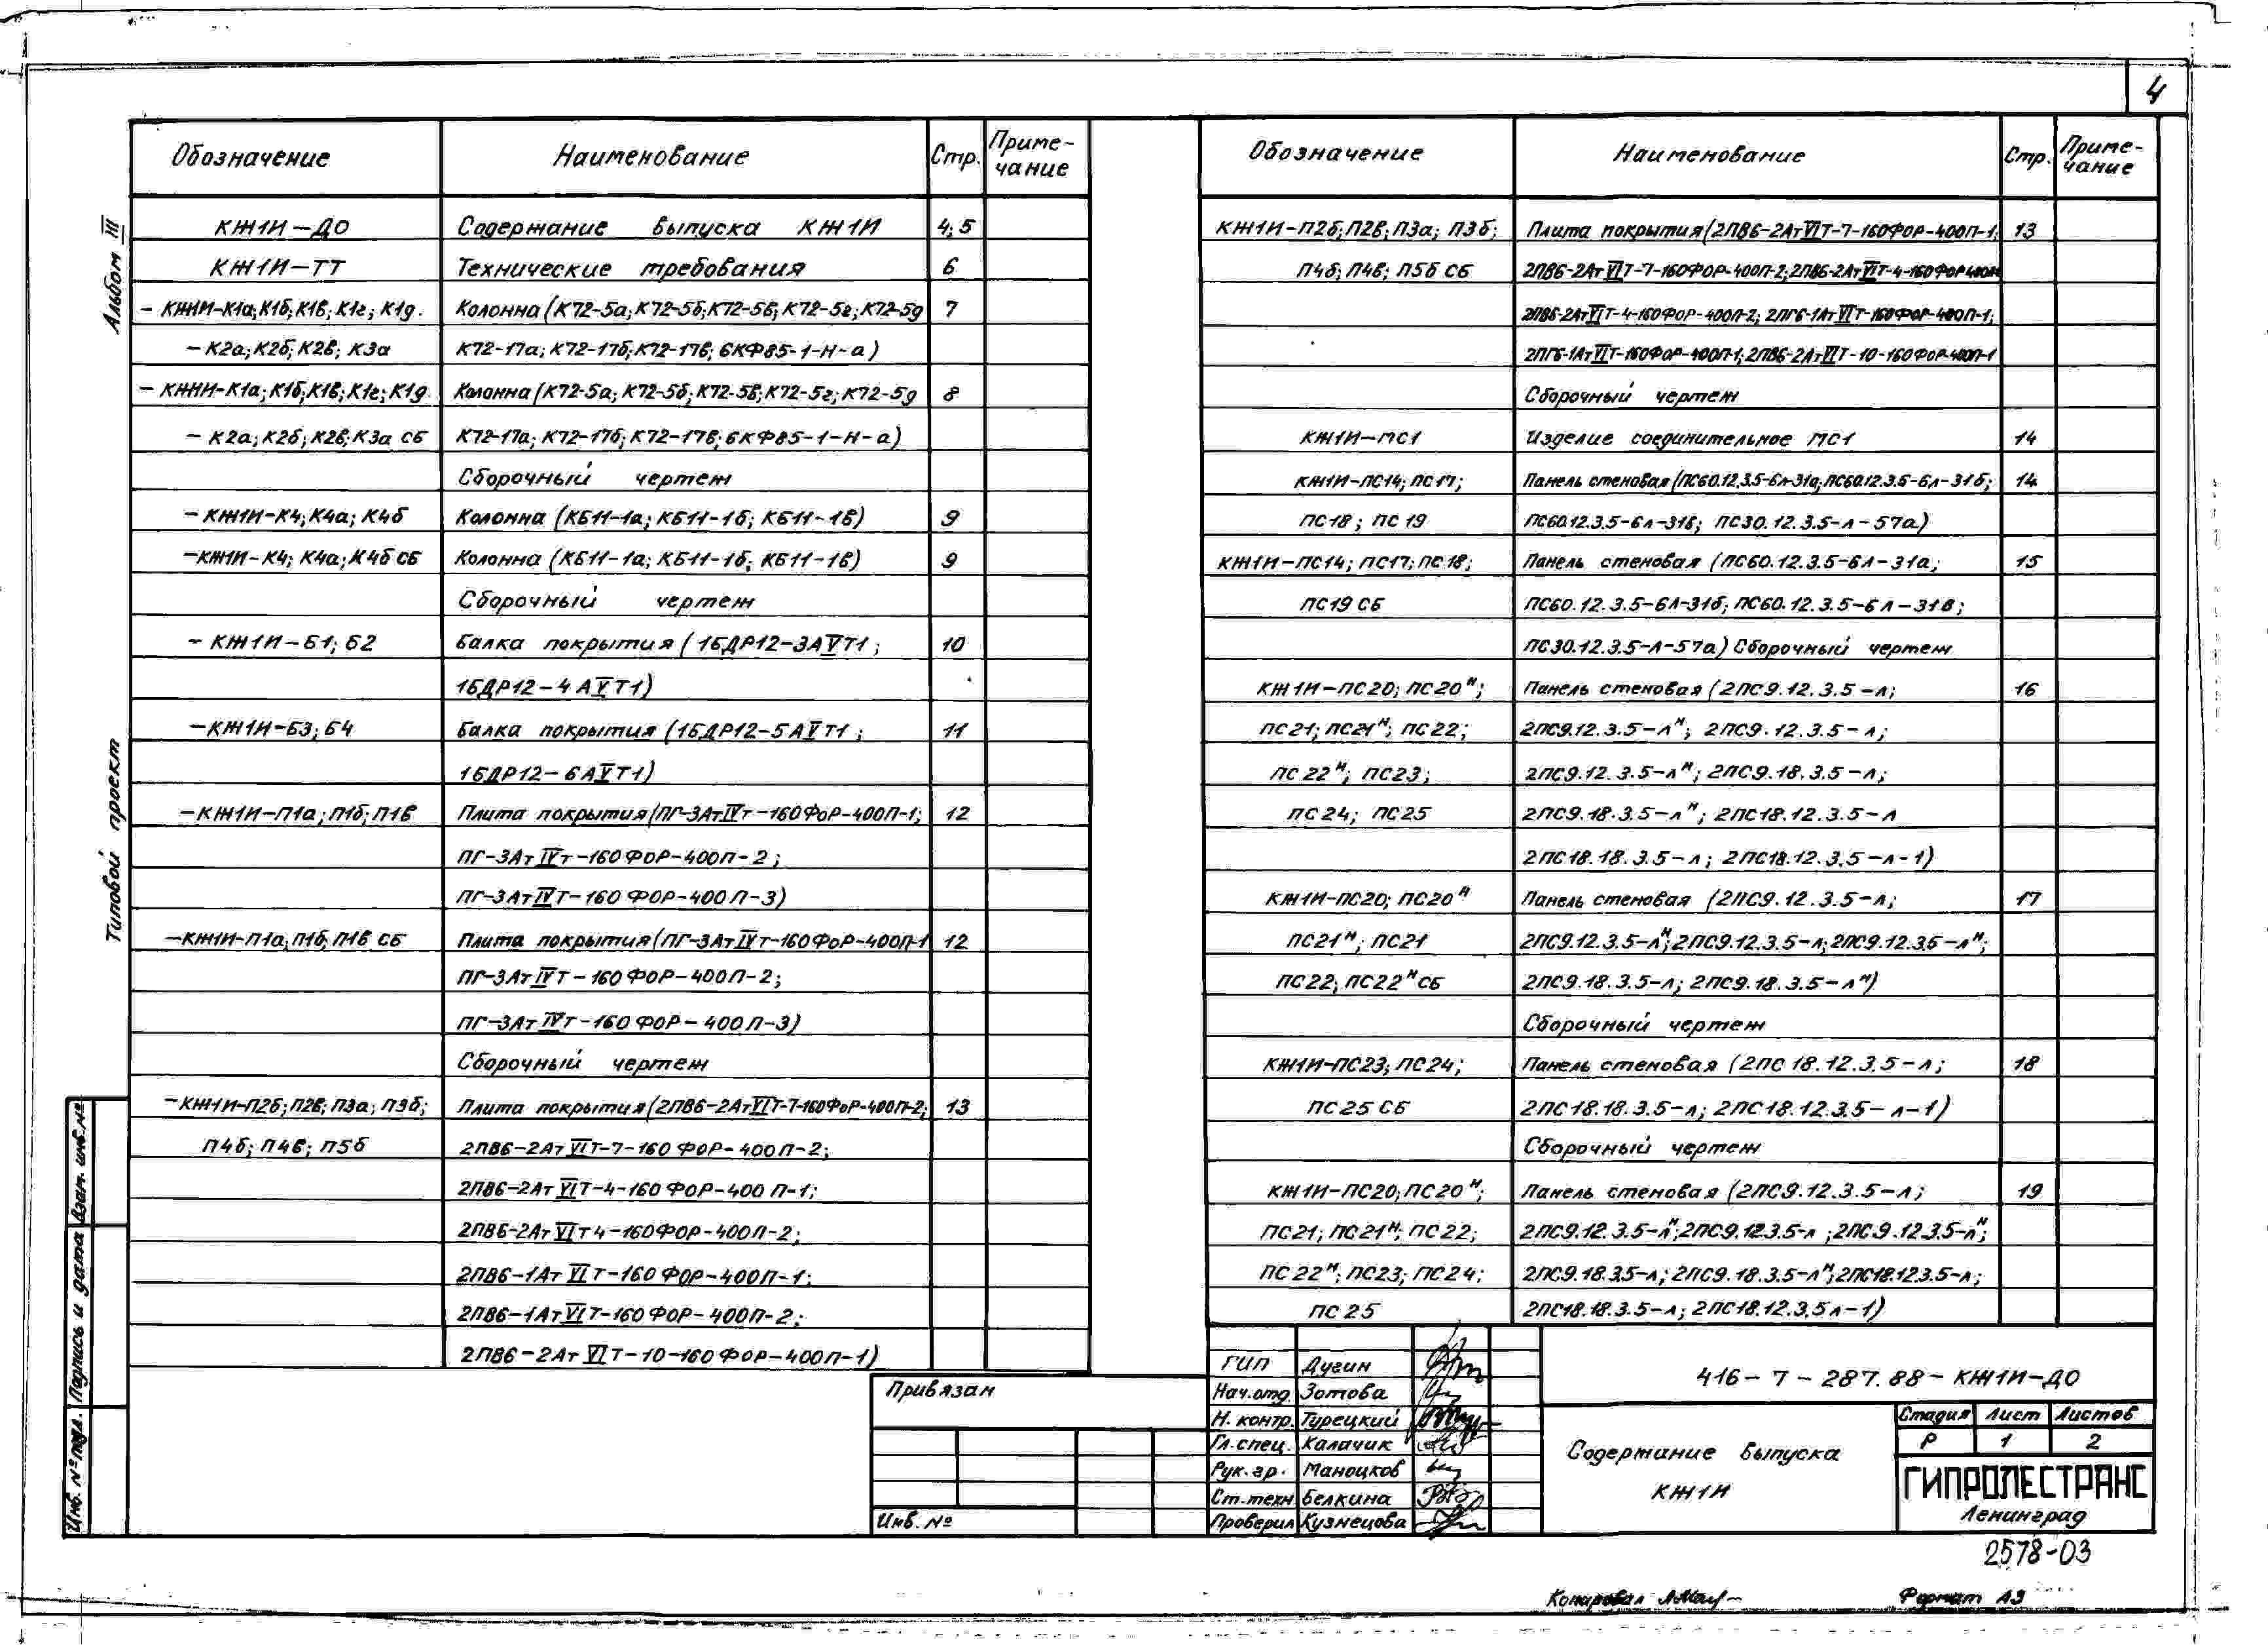 4
Альбом III
Типовой проект
Обозначение Наименование Стр. Приме-
чание
КЖ1И-ДО Содержание выпуска КЖ1И 4; 5
КЖ1И-ТТ Технические требования 6
-КЖ1И-К1а; К1б; К1в; К1г; К1д. Колонна (К72-5а; К72-5б; К72-5в; К72-5г; К72-5д 7
-К2а; К2б; К2в; К3а К72-17а; К72-17б; К72-17в; 6КФ85-1-Н-а)
-КЖ1И-К1а; К1б; К1в; К1г; К1д. Колонна (К72-5а; К72-5б; К72-5в; К72-5г; К72-5д 8
-К2а; К2б; К2в; К3а СБ К72-17а; К72-17б; К72-17в; 6КФ85-1-Н-а)
Сборочный чертеж
-КЖ1И-К4; К4а; К4б Колонна (КБ11-1а; КБ11-1б; КБ11-1в) 9
-КЖ1И-К4; К4а; К4б СБ Колонна (КБ11-1а; КБ11-1б; КБ11-1в) 9
Сборочный чертеж
-КЖ1И-Б1; Б2 Балка покрытия (1БДР12-3АVТ1; 10
1БДР12-4АVТ1)
-КЖ1И-Б3; Б4 Балка покрытия (1БДР12-5АVТ1; 11
1БДР12-6АVТ1)
-КЖ1И-П1а; П1б; П1в Плита покрытия (ПГ-3АтIVт-160ФОР-400П-1; 12
ПГ-3АтIVт-160ФОР-400П-2;
ПГ-3АтIVТ-160ФОР-400П-3)
-КЖ1И-П1а; П1б; П1в СБ Плита покрытия (ПГ-3АтIVТ-160ФОР-400П-1 12
ПГ-3АтIVТ-160ФОР-400П-2;
ПГ-3АтIVТ-160ФОР-400П-3)
Сборочный чертеж
-КЖ1И-П2б; П2в; П3а; П3б; Плита покрытия (2ПВ6-2АтVIТ-7-160ФОР-400П-2; 13
П4б; П4в; П5б 2ПВ6-2АтVIТ-7-160ФОР-400П-2;
2ПВ6-2АтVIТ-4-160ФОР-400П-1;
2ПВ6-2АтVIТ4-160ФОР-400П-2;
2ПВ6-1АтVIТ-160ФОР-400П-1;
2ПВ6-1АтVIТ-160ФОР-400П-2;
2ПВ6-2АтVIТ-10-160ФОР-400П-1)
Обозначение Наименование Стр. Приме-
чание
КЖ1И-П2б; П2в; П3а; П3б; Плита покрытия (2ПВ6-2АтVIТ-7-160ФОР-400П-1; 13
П4б; П4в; П5б СБ 2ПВ6-2АтVIТ-7-160ФОР-400П-2; 2ПВ6-2АтVIТ-4-160ФОР400П
2ПВ6-2АтVIТ-4-160ФОР-400П-2; 2ПГ6-1АтVIТ-160ФОР-400П-1;
2ПГ6-1АтVIТ-160ФОР-400П-1; 2ПВ6-2АтVIТ-10-160ФОР-400П-1
Сборочный чертеж
КЖ1И-МС1 Изделие соединительное МС1 14
КЖ1И-ПС14; ПС17; Панель стеновая (ПС60.12.3.5-6л-31а; ПС60.12.3.5-6л-31б; 14
ПС18; ПС19 ПС60.12.3.5-6л-31в; ПС30.12.3.5-л-57а)
КЖ1И-ПС14; ПС17; ПС18; Панель стеновая (ПС60.12.3.5-6л-31а; 15
ПС19 СБ ПС60.12.3.5-6л-31б; ПС60.12.3.5-6л-31в;
ПС30.12.3.5-л-57а) Сборочный чертеж
КЖ1И-ПС20; ПС20н; Панель стеновая (2ПС9.12.3.5-л; 16
ПС21; ПС21н; ПС22; 2ПС9.12.3.5-лн; 2ПС9.12.3.5-л;
ПС22н; ПС23; 2ПС9.12.3.5-лн; 2ПС9.18.3.5-л;
ПС24; ПС25 2ПС9.18.3.5-лн; 2ПС18.12.3.5-л
2ПС18.18.3.5-л; 2ПС18.12.3.5-л-1)
КЖ1И-ПС20; ПС20н Панель стеновая (2ПС9.12.3.5-л; 17
ПС21н; ПС21 2ПС9.12.3.5-лн; 2ПС9.12.3.5-л; 2ПС9.12.3.5-лн;
ПС22; ПС22н СБ 2ПС9.18.3.5-л; 2ПС9.18.3.5-лн)
Сборочный чертеж
КЖ1И-ПС23; ПС24; Панель стеновая (2ПС18.12.3.5-л; 18
ПС25 СБ 2ПС18.18.3.5-л; 2ПС18.12.3.5-л-1)
Сборочный чертеж
КЖ1И-ПС20; ПС20н; Панель стеновая (2ПС9.12.3.5-л; 19
ПС21; ПС21н; ПС22; 2ПС9.12.3.5-лн; 2ПС9.12.3.5-л; 2ПС9.12.3.5-лн;
ПС22н; ПС23; ПС24; 2ПС9.18.3.5-л; 2ПС9.18.3.5-лн; 2ПС18.12.3.5-л;
ПС25 2ПС18.18.3.5-л; 2ПС18.12.3.5л-1)
Инв. № подл. Подпись и дата Взам. инв. №
Привязан
Инв. №
ГИП Дугин
Нач.отд. Зотова
Н. контр. Турецкий
Гл.спец. Калачик
Рук.гр. Маноцков
Ст.техн Белкина
Проверил Кузнецова
416-7-287.88-КЖ1И-ДО
Содержание выпуска
КЖ1И
Стадия Лист Листов
Р 1 2
ГИПРОЛЕСТРАНС
Ленинград
2578-03
Копировал
Формат А3